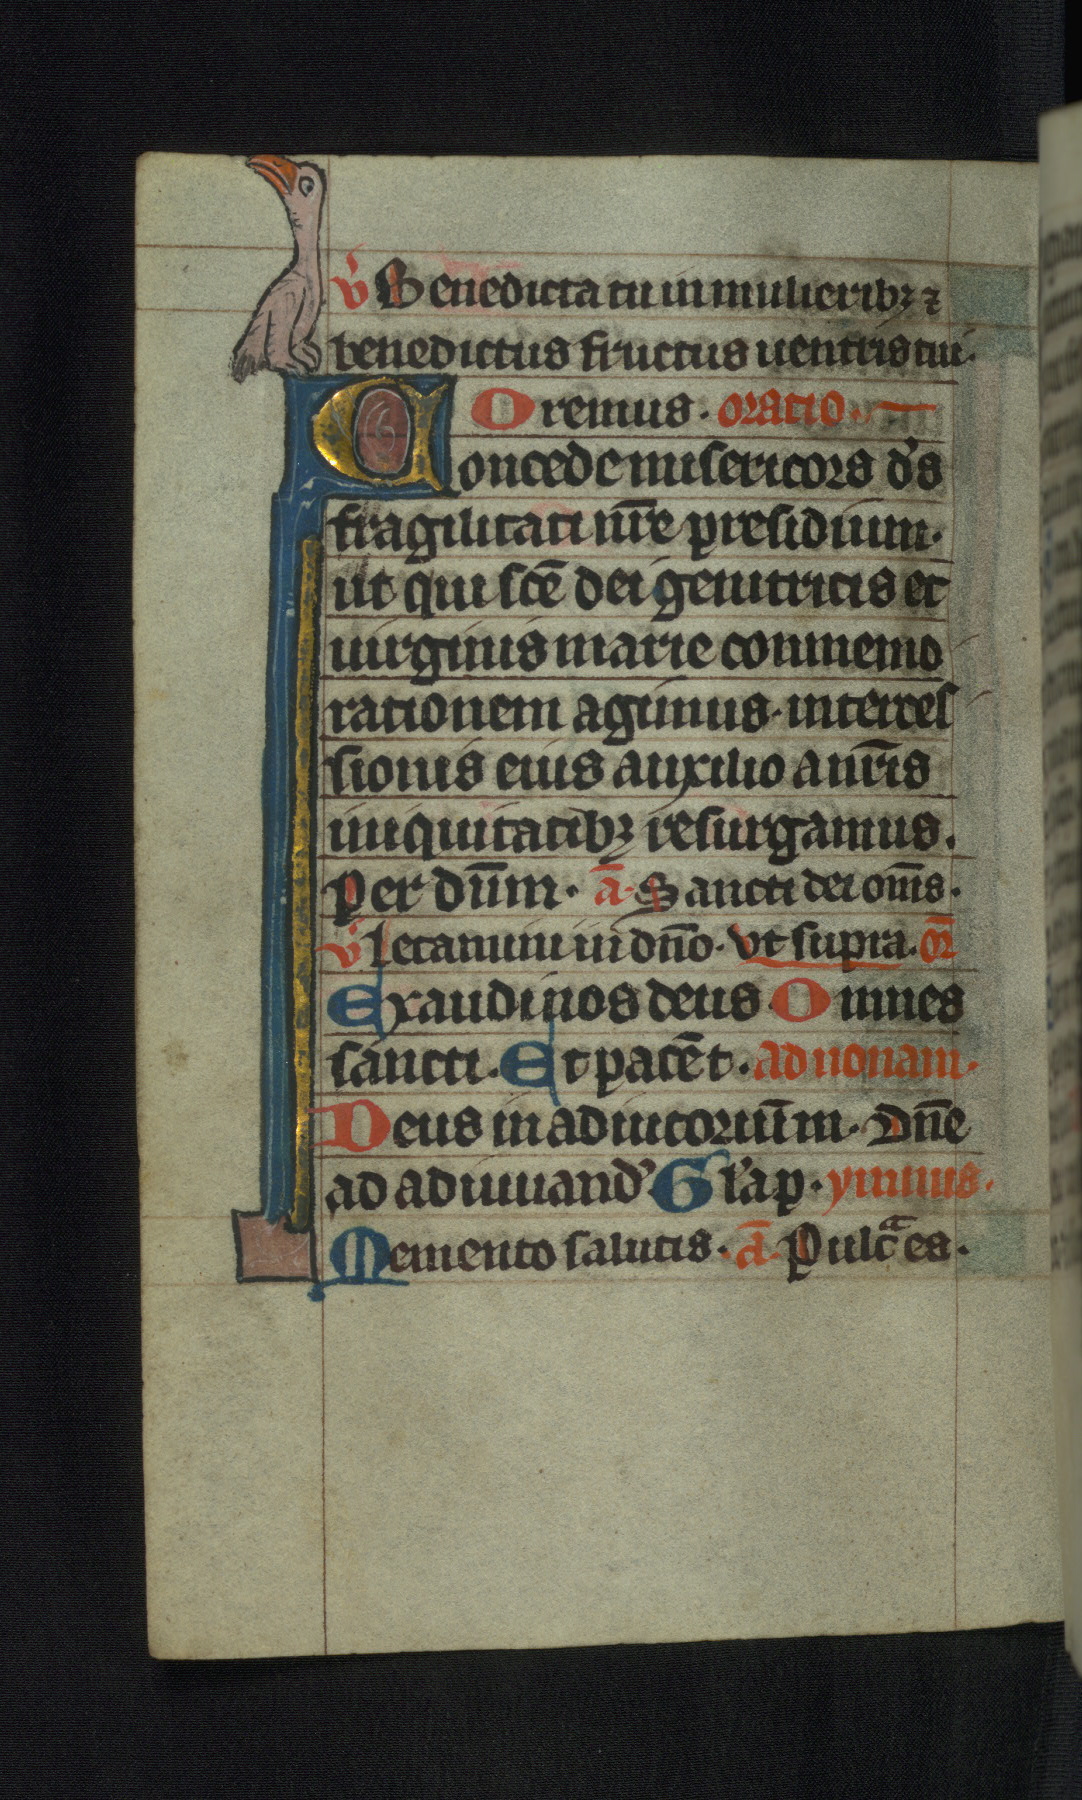 v̄ Benedicta tu in mulieribꝫ ⁊
benedictus fructus uentris tui·
Oremus · oratio ·
Concede misericors d̄s
fragilitati nr̄e presidium·
ut qui sc̄e dei genitricis et
uirginis marie conmemo
rationem agimus· interces
sionis eius auxilio a nr̄is
iniquitatibꝫ resurgamus.
Per dn̄m · ā· Sancti dei om̄s·
v̄ letamini in dn̄o· vt supra· or̄
Exaudi nos deus· Omnes
sancti· Et pacē t̄· ad nonam·
Deus in adiutoriūm· Dn̄e
ad adiuuand᾽ Gl'a p· ymnus·
Memento salutis· ā· Pulcᵃ es·